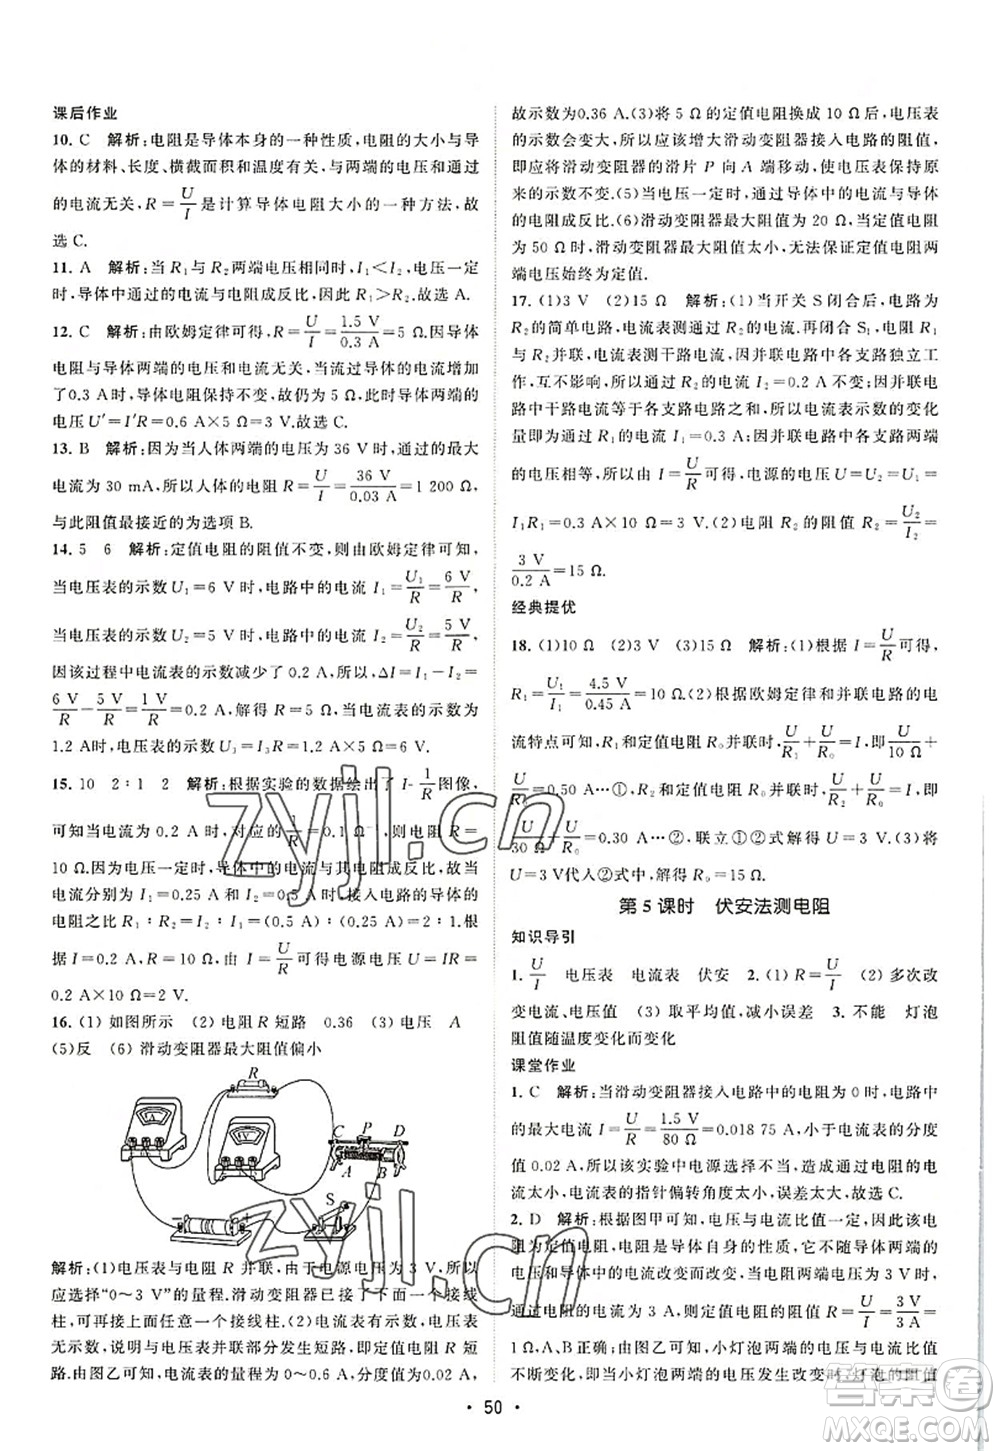 课后作业
10. C 解析:电阻是导体本身的一种性质,电阻的大小与导
体的材料、长度、横截面积和温度有关,与两端的电压和通过
的电流无关,R=U/I是计算导体电阻大小的一种方法,故
选 C.
11. A 解析:当 R₁与R₂两端电压相同时,I₁<I₂,电压一定
时,导体中通过的电流与电阻成反比,所以 R₁>R₂.故选 A.
12. C 解析:由欧姆定律可得,R=U/I=1.5 V/0.3 A=5 Ω.因导体
电阻与导体两端的电压和电流无关,所以,当导体中的电流
为0.3 A时,导体电阻保持不变,故仍为5 Ω;导体两端的电
压 U′=I′R=0.6 A×5 Ω=3 V.故选C.
13. B 解析:因为当人体两端的电压为 36 V 时,通过的最大
电流为 30 mA,所以人体的电阻 R=U/I=36 V/0.03 A=1 200 Ω,
与此阻值最接近的为选项 B.
14. 5 6 解析:定值电阻的阻值不变,则由欧姆定律可知,
当电压表的示数U₁=6 V时,电路中的电流 I₁=U₁/R=6 V/R,
当电压表的示数U₂=5 V时,电路中的电流 I₂=U₂/R=5 V/R,
因该过程中电流表的示数减少了 0.2 A,所以,ΔI=I₁-I₂=
6 V/R-5 V/R=1 V/R=0.2 A,解得 R=5 Ω;当电流表的示数为
1.2 A时,电压表的示数U₃=I₃R=1.2 A×5 Ω=6 V.
15. 10 2:1 2 解析:根据实验的数据绘出了 I-1/R图像,
可知当电流为 0.2 A 时,对应的1/R=0.1 Ω⁻¹,则电阻 R=
10 Ω.因为电压一定时,导体中的电流与其电阻成反比,所以当
电流分别为I₁=0.25 A和I₂=0.5 A时,接入电路的导体的电
阻之比 R₁:R₂=I₂:I₁=(0.5 A):(0.25 A)=2:1.根
据 I=0.2 A 时,R=10 Ω,由 I=U/R可得电源电压 U=IR=
0.2 A×10 Ω=2 V.
16. (1) 如图所示 (2) 电阻 R 短路 0.36 (3) 电压 A
(5)反 (6) 滑动变阻器最大阻值偏小
R
A
V
C P D
A B
S
- +
解析:(1)电压表与电阻 R 并联,由于电源电压为 3 V,所以
应选择“0~3 V”的量程.滑动变阻器已接下面的一个接线
柱,可再接上面任意一个接线柱.(2)电流表有示数,电压表
无示数,说明与电压表并联部分发生短路,即电阻 R 发生短
路.由图乙可知,电流表量程为 0~0.6 A,分度值为0.02 A,
故示数为0.36 A.(3)将 5 Ω 的定值电阻换成 10 Ω后,电压表
的示数会变大,所以应该增大滑动变阻器接入电路的阻值,
即应将滑动变阻器的滑片 P 向 A 端移动,使电压表保持原
来的示数不变.(5)当电压一定时,通过导体中的电流与导体
的电阻成反比.(6)滑动变阻器最大阻值为 20 Ω,当定值电阻
为 50 Ω 时,滑动变阻器最大阻值太小,无法保证定值电阻两
端电压始终为定值.
17. (1)3 V (2)15 Ω 解析:(1)当开关 S闭合后,电路为
R₁的简单电路,电流表测通过R₁的电流;再闭合S₁,电阻 R₁
与R₂并联,电流表测干路电流,因并联电路中各支路独立工
作、互不影响,所以通过 R₂的电流 I₂=0.2 A;因并联电
路中干路电流等于各支路电流之和,所以电流表示数的变化
量即为通过R₁的电流 I₁=0.3 A;因并联电路中各支路两端
的电压相等,所以由 I=U/R可得,电源的电压 U=U₂=U₁=
I₁R₁=0.3 A×10 Ω=3 V.(2)电阻 R₂的阻值 R₂=U₂/I₂=
3 V/0.2 A=15 Ω.
经典提优
18. (1)10 Ω (2)3 V (3)15 Ω 解析:(1)根据 I=U/R可得,
R₁=U₁/I₁=4.5 V/0.45 A=10 Ω.(2)根据欧姆定律和并联电路的电
流特点可知,当定值电阻 R₀并联电阻 R₁时,U/R₁+U/R₀=I,即U/10 Ω+
U/R₀=0.50 A…①,当定值电阻 R₀并联电阻 R₂时,
U/30 Ω+U/R₀=0.30 A…②,联立①②可得,U=3 V.(3)将
U=3 V代入②式中,解得,R₀=15 Ω.
第 5 课时 伏安法测电阻
知识导引
1. U/I 电压表 电流表 伏安 2. (1) R=U/I (2) 多次改
变电流、电压值 (3) 取平均值,减小误差 3. 不能 灯泡
阻值随温度变化而变化
课堂作业
1. C 解析:当滑动变阻器接入电路中的电阻为 0 时,电路中
的最大电流 I=U/R=1.5 V/80 Ω=0.018 75 A,小于电流表的分度
值 0.02 A,所以该实验中电源选择不妥当,使电路中的电
流太小,电流表的指针偏转角度太小,读数误差大.故选C.
2. D 解析:根据图甲可知,电压与电流比值一定,故甲为定值
电阻,电阻是导体自身的性质,不会随导体两端电压的改变
而改变,通过电流的改变而改变,当电阻两端电压为 3 V时,
通过电阻的电流为 3 A,则定值电阻的阻值 R=U/I=3 V/3 A=
1 Ω,A、B、C错误;由图乙可知,小灯泡两端的电压与电流比值
不断变化,所以,当小灯泡两端的电压发生改变时,灯泡的阻值
· 50 ·
zyjl.cn
zyjl.cn
答案圈
MXQE.COM